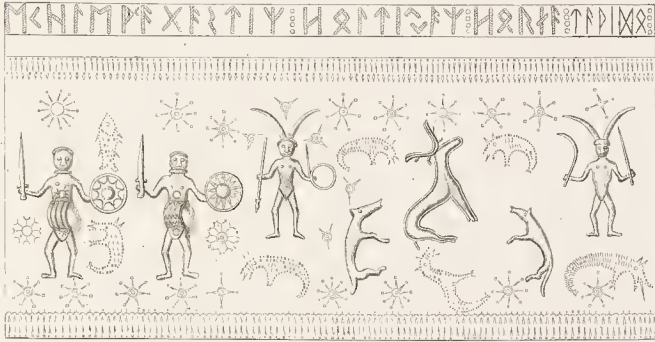 ᛖᚲᚺᛚᛖᚹᚨᚷᚨᛊᛏᛁᛉ⁞ᚺᛟᛚᛏᛁᛃᚨᛉ⁞ᚺᛟᚱᚾᚨ⁞ᛏᚨᚹᛁᛞᛟ⁞